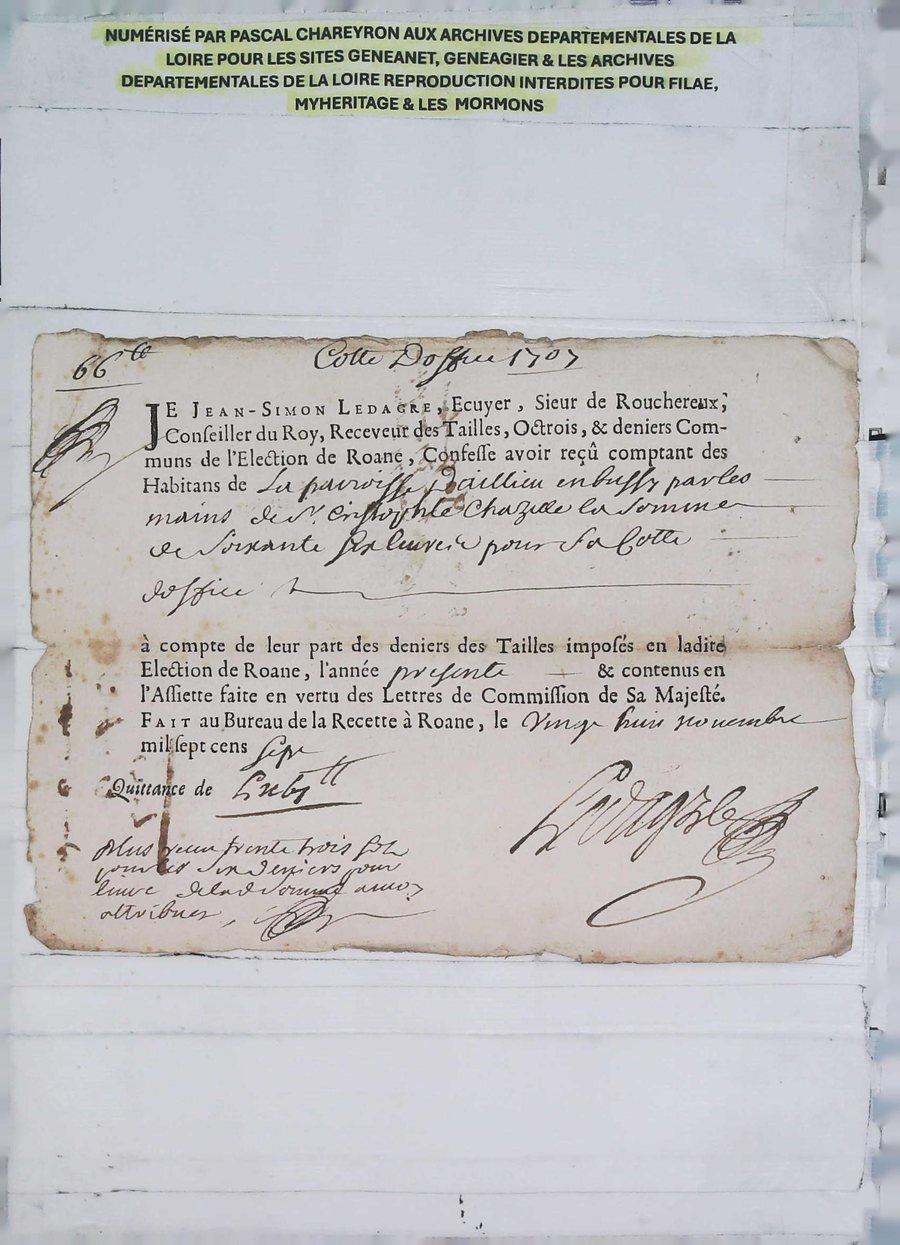 NUMÉRISÉ PAR PASCAL CHAREYRON AUX ARCHIVES DEPARTEMENTALES DE LA
LOIRE POUR LES SITES GENEANET, GENEAGIER & LES ARCHIVES
DEPARTEMENTALES DE LA LOIRE REPRODUCTION INTERDITES POUR FILAE,
MYHERITAGE & LES MORMONS
66 tt
Cotte Doffice 1707
JE JEAN-SIMON LEDAGRE, Ecuyer, Sieur de Rouchereux,
Conseiller du Roy, Receveur des Tailles, Octrois, & deniers Com-
muns de l'Election de Roane, Confesse avoir reçû comptant des
Habitans de La parroisse Daillieu en bussy par les
mains de Sr. Cristophle Chazelle la Somme
de Soixante Six livres pour Sa Cotte
doffice
à compte de leur part des deniers des Tailles imposés en ladite
Election de Roane, l'année presente & contenus en
l'Assiette faite en vertu des Lettres de Commission de Sa Majesté.
FAIT au Bureau de la Recette à Roane, le Vingt huit novembre
mil sept cens Sept
Quittance de
Ledagre
plus receu trente trois sols
pour les Six deniers pour
livre de lad Somme a nous
attribuez,